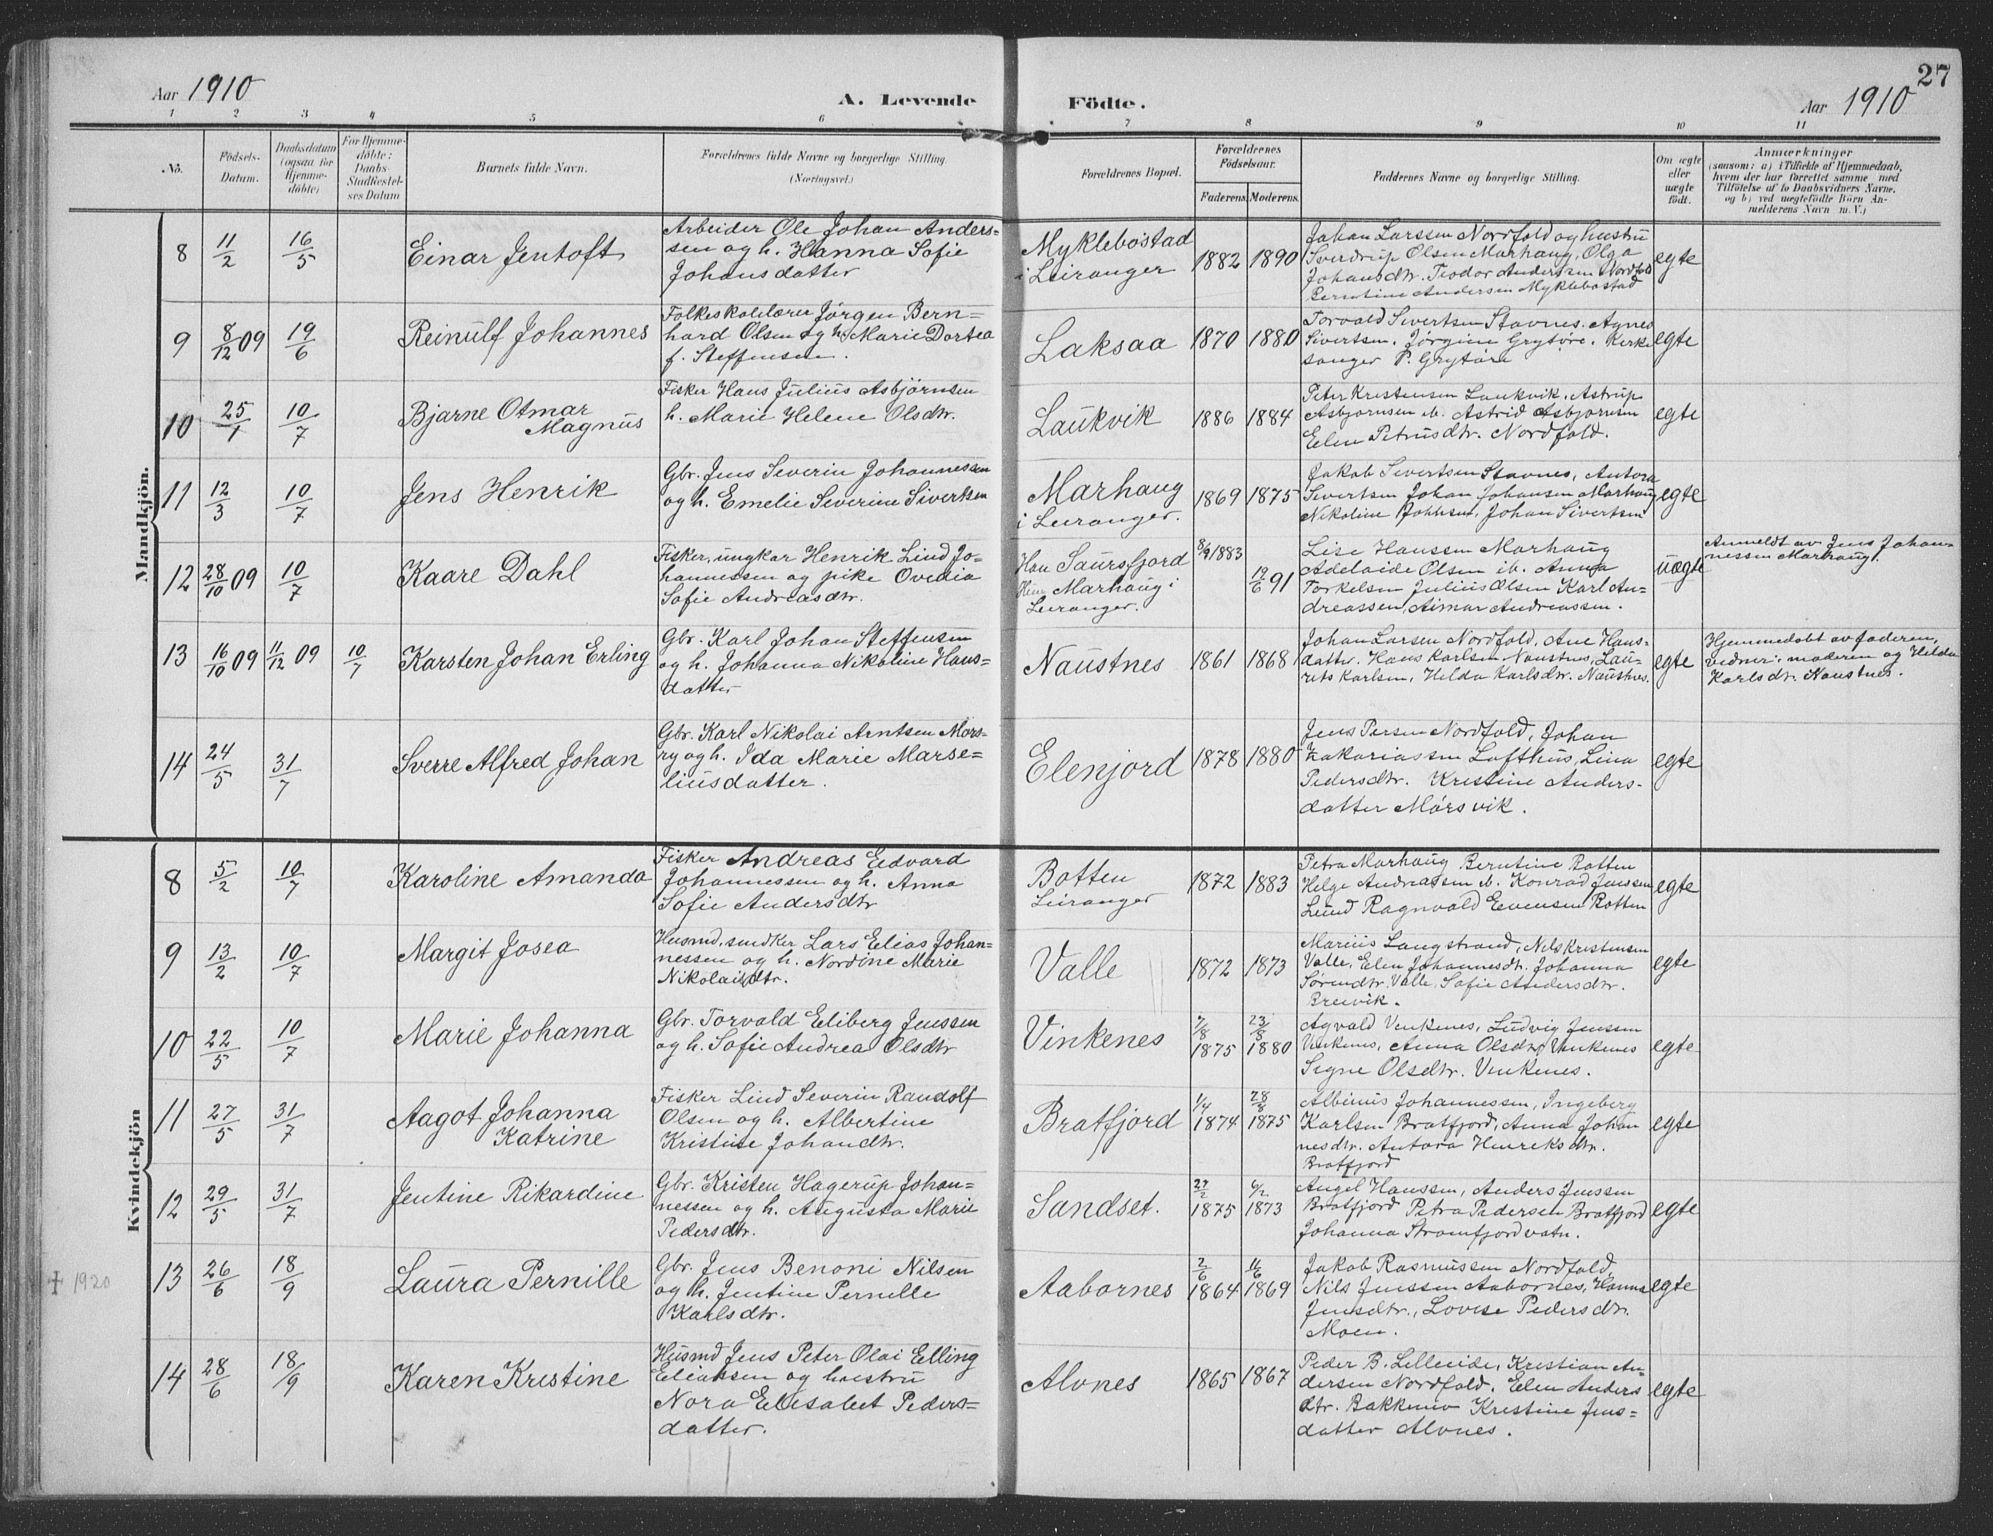 Aar 1910
A. Levende Födte.
Aar 1910
27
1 2 3 4 5 6 7 8 9 10 11
No.
Födsels-Datum.
Daabsdatum (ogsaa for Hjemme-döbte)
For Hjemme-döbte: Daabs-Stadfæstel-ses Datum
Barnets fulde Navn.
Forældrenes fulde Navne og borgerlige Stilling. (Næringsvei.)
Forældrenes Bopæl.
Forældrenes Födselsaar. Faderens. Moderens.
Faddernes Navne og borgerlige Stilling.
Om ægte eller uægte födt.
Anmærkninger
(saasom: a) i Tilfælde af Hjemmedaab,
hvem der har forrettet samme med
Tilföielse af to Daabsvidners Navne.
og b) ved uægtefödte Börn An-
melderens Navn m. V.)
Mandkjön.
8 11/2 16/5 Einar Jentoft
Arbeider Ole Johan Anders-
sen og h. Hanna Sofie
Johansdatter
Myklebostad
i Leiranger
1882 1890
Johan Larssen Nordfold og hustru
Sverdrup Olsen Marhaug, Olga
Johansdtr. Teodor Andersen Nordfold
Berntine Andersen Myklebostad
egte
9 8/12 09 19/6 Reinulf Johannes
Folkeskolelærer Jørgen Bern-
hard Olsen og h. Marie Dortea
f. Steffensen.
Laksaa
1870 1880
Torvald Sivertsen Stavnes. Agnes
Sivertsen. Jørgine Grytøre. Kirke
sanger P. Grytøre
egte
10 25/1 10/7 Bjarne Otmar
Magnus
Fisker Hans Julius Asbjørnsen
h. Marie Helene Olsdtr.
Laukvik
1886 1884
Peter Kristensen Laukvik. Astrup
Asbjørnsen ib. Astrid Asbjørnsen
Elen Petrusdtr. Nordfold.
egte
11 12/3 10/7 Jens Henrik
Gbr. Jens Severin Johannessen
og h. Emelie Severine Sivertsen
Marhaug
i Leiranger.
1869 1875
Jakob Sivertsen Stavnes, Antora
Sivertsen Johan Johansen Marhaug
Nikoline Johnsen, Johan Sivertsen
egte
12 28/10 09 10/7 Kaare Dahl
Fisker, ungkar Henrik Lind Jo-
hannessen og pike Ovedia
Sofie Andreasdtr.
Han Saursfjord
Marhaug i
Leiranger.
8/9 1883 12/6 91
Lise Hanssen Marhaug
Adelaide Olsen ib. Anna
Torkelsen Julius Olsen Karl An-
dreassen, Aimar Andreassen.
uægte
Anmeldt av Jens Johan-
nessen Marhaug.
13 16/10 09 11/12 09 10/7 Karsten Johan Erling
Gbr. Karl Johan Steffensen
og h. Johanna Nikoline Hans-
datter
Naustnes
1861 1868
Johan Larsen Nordfold, Ane Hans-
datter. Hans Karlsen Naustnes, Lau-
rits Karlsen, Hilda Karlsdtr. Naustnes.
egte
Hjemmedøbt av faderen,
vidner: moderen og Hilda
Karlsdtr. Naustnes.
14 24/5 31/7 Sverre Alfred Johan
Gbr. Karl Nikolai Arntsen Mørs-
ry og h. Ida Marie Marse-
liusdatter.
Elenjord
1878 1880
Jens Persen Nordfold, Johan
Zakariassen Lofthus, Lina
Pedersdtr. Kristine Anders-
datter Mørsvik.
egte
Kvindekjön
8 5/2 10/7 Karoline Amanda
Fisker Andreas Edvard
Johannessen og h. Anna
Sofie Andersdtr
Botten
Leiranger
1872 1883
Petra Marhaug Berntine Botten
Helge Andreassen ib. Konrad Jenssen
Lund Ragnvald Evensen Botten
egte
9 13/2 10/7 Margit Josea
Husmd, smdker Lars Elias Johan-
nessen og h. Nordine Marie
Nikolaidtr.
Valle
1872 1873
Marius Langstrand, Nils Kristensen
Valle, Elen Johannesdtr. Johanna
Sørendtr. Valle, Sofie Andersdtr.
Breivik.
egte
10 22/5 10/7 Marie Johanna
Gbr. Torvald Eliberg Jenssen
og h. Sofie Andrea Olsdtr
Vinkenes
7/8 1875 23/8 1880
Agvald Vinkenes, Ludvig Jenssen
Vinkenes, Anna Olsdtr Vinkenes
Signe Olsdtr. Vinkenes.
egte
11 27/5 31/7 Aagot Johanna
Katrine
Fisker Lind Severin Randolf
Olsen og h. Albertine
Kristine Johandtr.
Bratfjord
1/4 1874 28/8 1875
Albinus Johannessen, Ingeberg
Karlsen Bratfjord, Anna Johan
nesdtr. Antora Henriksdtr.
Bratfjord
egte
12 29/5 31/7 Jentine Rikardine
Gbr. Kristen Hagerup Johan-
nessen og h. Augusta Marie
Pedersdtr.
Sandset.
27/2 1875 6/2 1873
Angel Hanssen, Anders Jenssen
Bratfjord Petra Pedersen Bratfjord
Johanna Strømfjordvatn.
egte
✝ 1920
13 26/6 18/9 Laura Pernille
Gbr. Jens Benoni Nilsen
og h. Jentine Pernille
Karlsdtr.
Aabornes
2/6 1864 11/6 1869
Jakob Rasmussen Nordfold,
Nils Jenssen Aabornes, Hanna
Jensdtr., Lovise Pedersdtr.
Moen.
egte
14 28/6 18/9 Karen Kristine
Husmd Jens Peter Olai Elling
Eliassen og hustru
Nora Elisabet Peders-
datter.
Alvnes
1865 1867
Peder B. Lilleeide, Kristian An-
dersen Nordfold. Elen Anders
dtr. Bakkemo Kristine Jens-
datter Alvnes.
egte